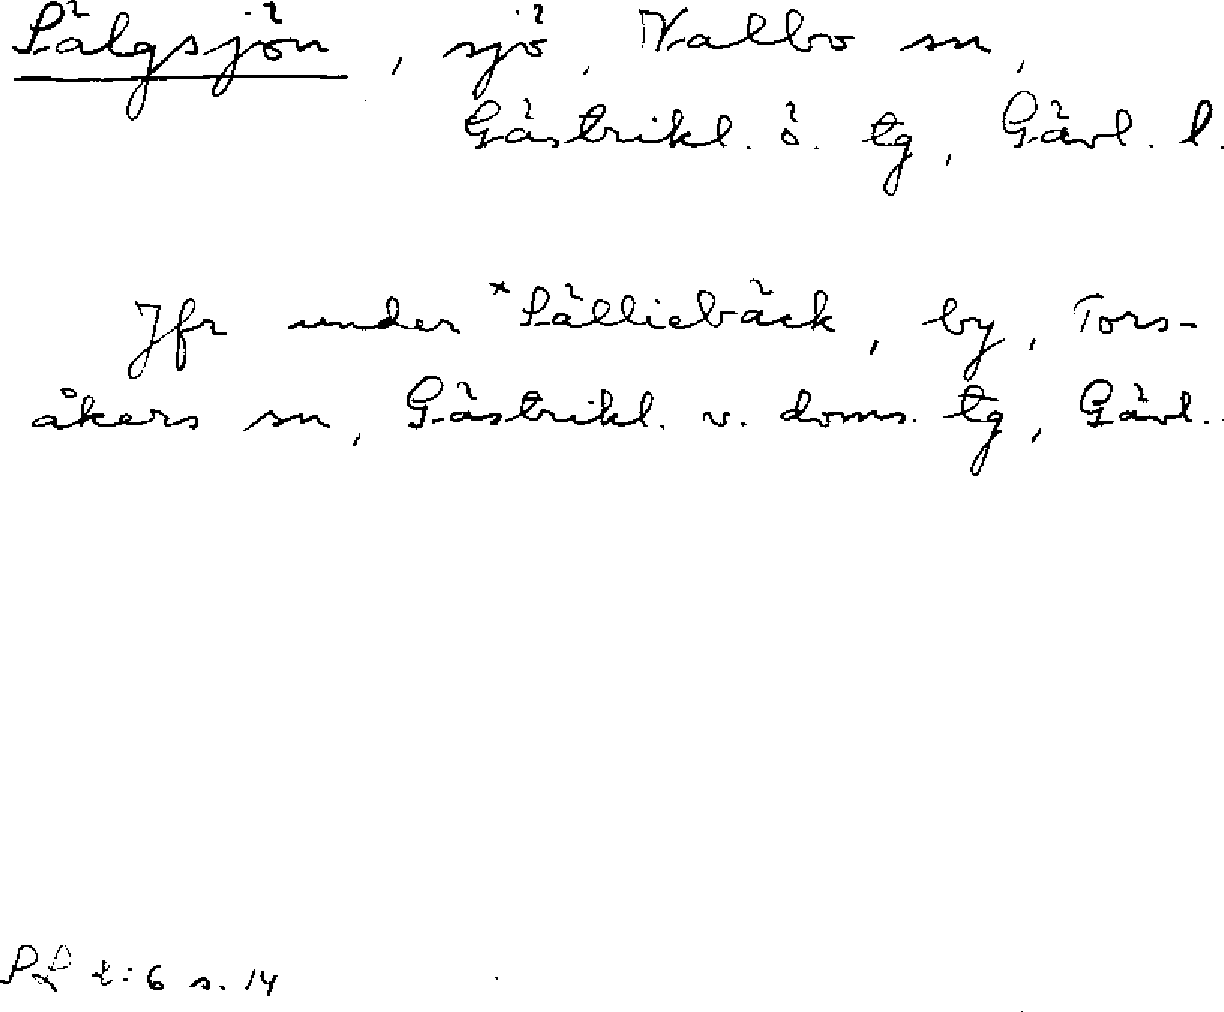 Sälgsjön, sjö, Valbo sn,
Gästrikl. ö. tg, Gävl. l.
Jfr under *Sälliebäck, by, Tors-
åkers sn, Gästrikl. v. doms. tg, Gävl.
s. 14